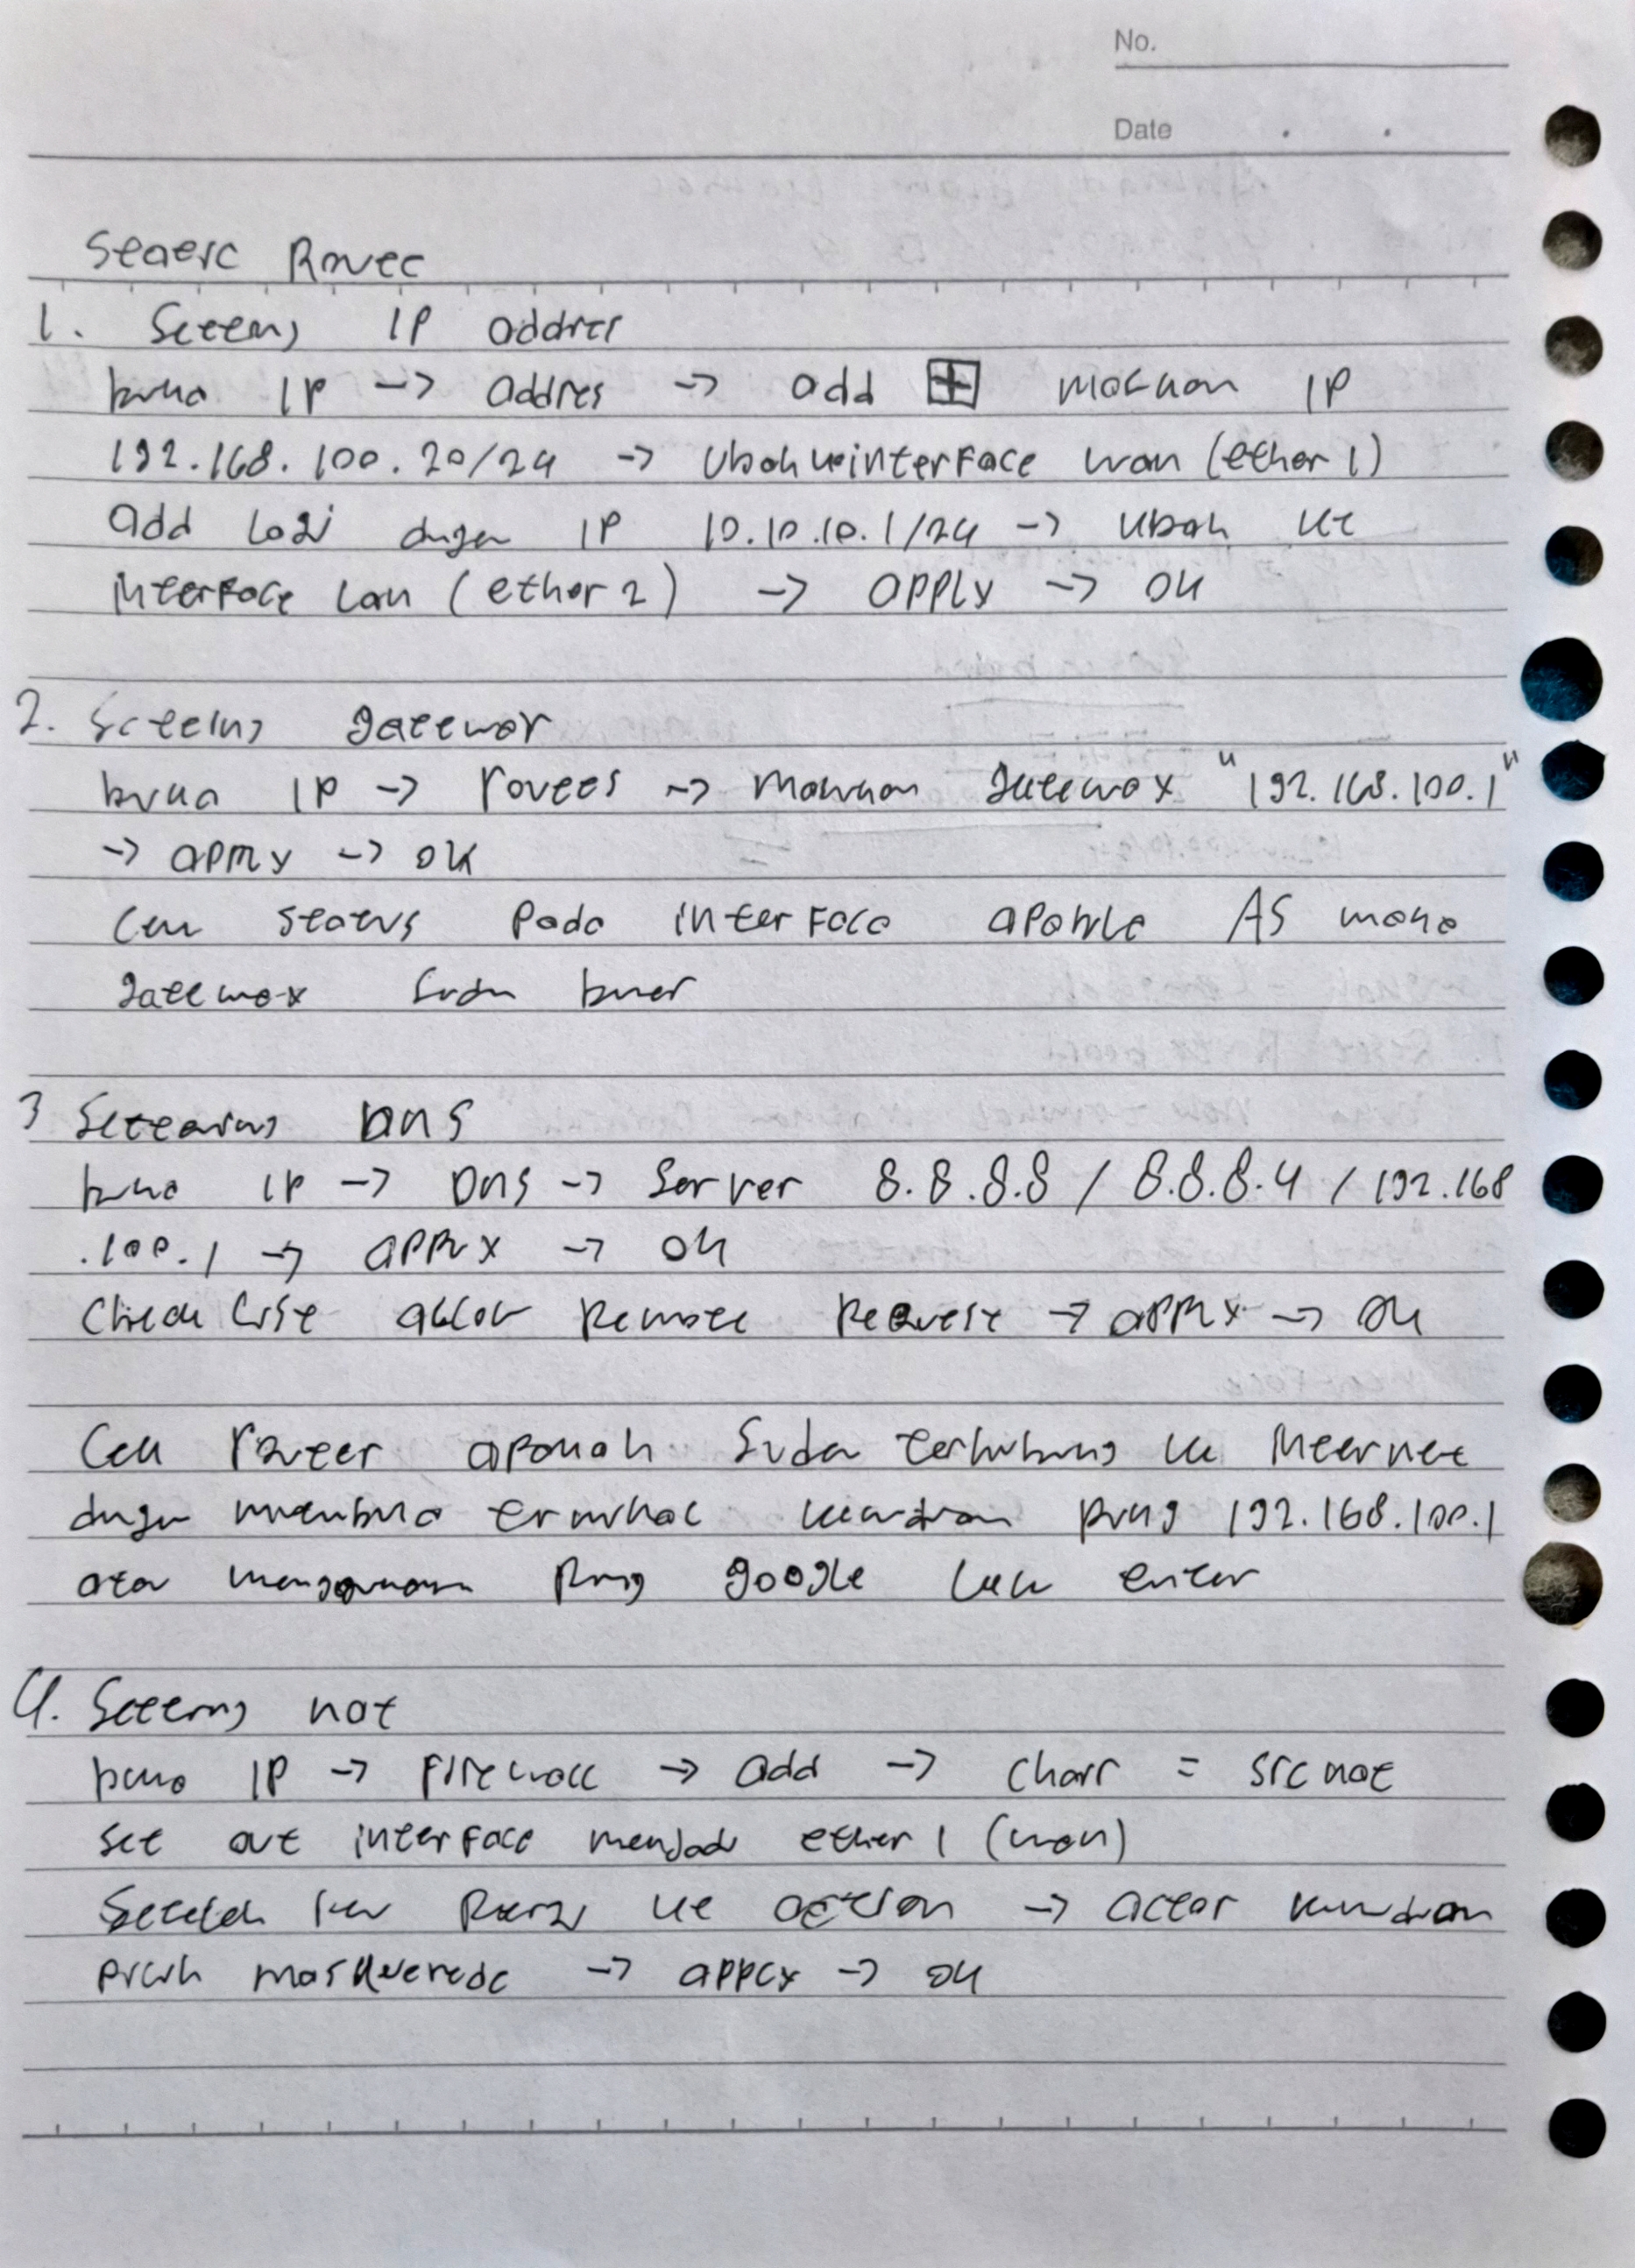 No.
Date
Static Route
1. Setting IP addres
buka IP -> addres -> add + masukan IP
192.168.100.20/24 -> Ubah ke interface wan (ether 1)
add lagi dngan IP 10.10.10.1/24 -> Ubah ke
interface Lan (ether 2) -> apply -> ok
2. Setting gateway
buka IP -> routes -> masukan gateway "192.168.100.1"
-> apply -> ok
Cek status pada interface apabila AS maka
gateway suda bner
3 Setting DNS
buka IP -> DNS -> Server 8.8.8.8 / 8.8.8.4 / 192.168
.100.1 -> apply -> ok
Check list allow Remote Request -> apply -> ok
Cek router apakah Suda terhubung ke Internet
dngan membuka terminal kemudian ping 192.168.100.1
atau menggunakan Ping google lalu enter
4. Setting nat
buka IP -> Firewall -> add -> chair = srcnat
set out interface menjadi ether 1 (wan)
Setelah ke action -> kemudian
pilih maskuerade -> apply -> ok